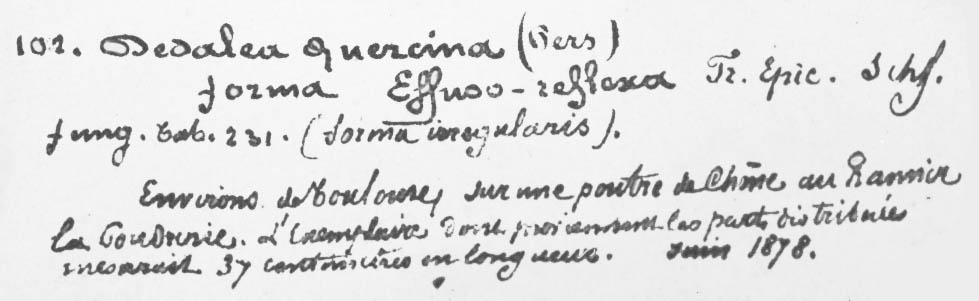 102. Dedalea Quercina (Pers)
forma Effuso-reflexa Fr. Epic. Schf.
fung. tab. 231. (forma irregularis).
Environs de Toulouse, sur une poutre de Chêne au
la Poudrerie. L'Exemplaire dont proviennent les parts distribuées
mesurait 37 centimètres en longueur. Juin 1878.